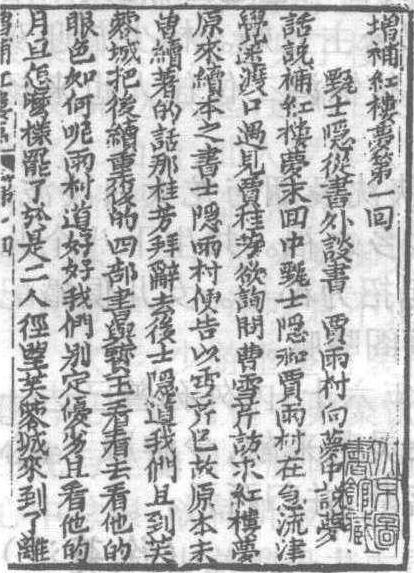 增補紅樓夢第一回
甄士隱從書外談書　賈雨村向夢中說夢
話說補紅樓夢末回中甄士隱和賈雨村在急流津
覺迷渡口遇見賈桂芳欲詢問曹雪芹訪求紅樓夢
原來續本之書士隱雨村便告以雪芹已故原本未
曾續著的話那桂芳拜辭去後士隱道我們且到芙
蓉城把後續重複的四部書與藝玉看看去看他的
眼色如何呢雨村道好好我們別定優劣且看他的
月旦怎麼樣罷了於是二人徑望芙蓉城來到了離